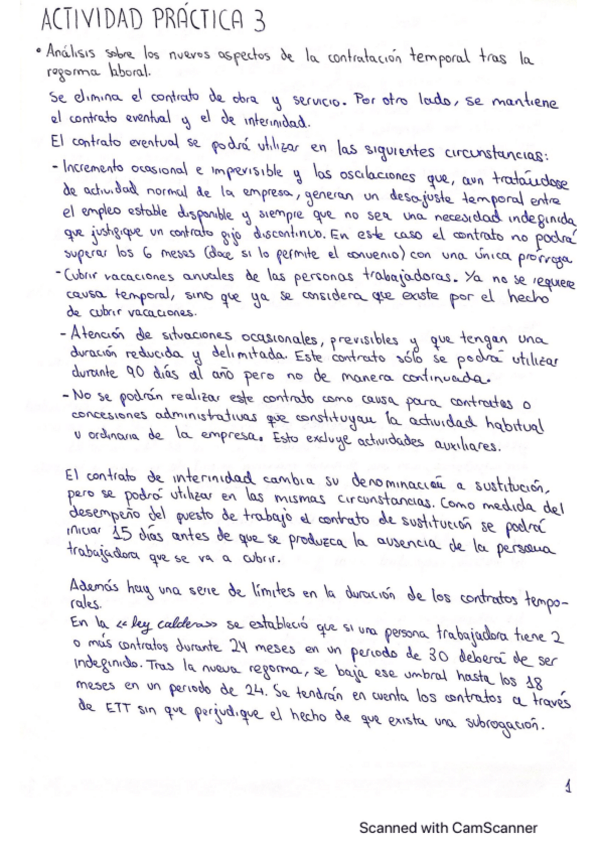 ACTIVIDAD PRÁCTICA 3
• Análisis sobre los nuevos aspectos de la contratación temporal tras la
reforma laboral.
Se elimina el contrato de obra y servicio. Por otro lado, se mantiene
el contrato eventual y el de interinidad.
El contrato eventual se podrá utilizar en las siguientes circunstancias:
- Incremento ocasional e imprevisible y las oscilaciones que, aun tratándose
de actividad normal de la empresa, generan un desajuste temporal entre
el empleo estable disponible y siempre que no sea una necesidad indefinida
que justifique un contrato fijo discontinuo. En este caso el contrato no podrá
superar los 6 meses (doce si lo permite el convenio) con una única prórroga
- Cubrir vacaciones anuales de las personas trabajadoras. Ya no se requiere
causa temporal, sino que ya se considera que existe por el hecho
de cubrir vacaciones.
- Atención de situaciones ocasionales, previsibles y que tengan una
duración reducida y delimitada. Este contrato sólo se podrá utilizar
durante 90 días al año pero no de manera continuada.
- No se podrán realizar este contrato como causa para contratos o
concesiones administrativas que constituyan la actividad habitual
u ordinaria de la empresa. Esto excluye actividades auxiliares.
El contrato de interinidad cambia su denominación a sustitución,
pero se podrá utilizar en las mismas circunstancias. Como medida del
desempeño del puesto de trabajo el contrato de sustitución se podrá
iniciar 15 días antes de que se produzca la ausencia de la persona
trabajadora que se va a cubrir.
Además hay una serie de límites en la duración de los contratos tempo-
rales.
En la «ley caldera» se estableció que si una persona trabajadora tiene 2
o más contratos durante 24 meses en un periodo de 30 deberá de ser
indefinido. Tras la nueva reforma, se baja ese umbral hasta los 18
meses en un periodo de 24. Se tendrán en cuenta los contratos a través
de ETT sin que perjudique el hecho de que exista una subrogación.
1
Scanned with CamScanner